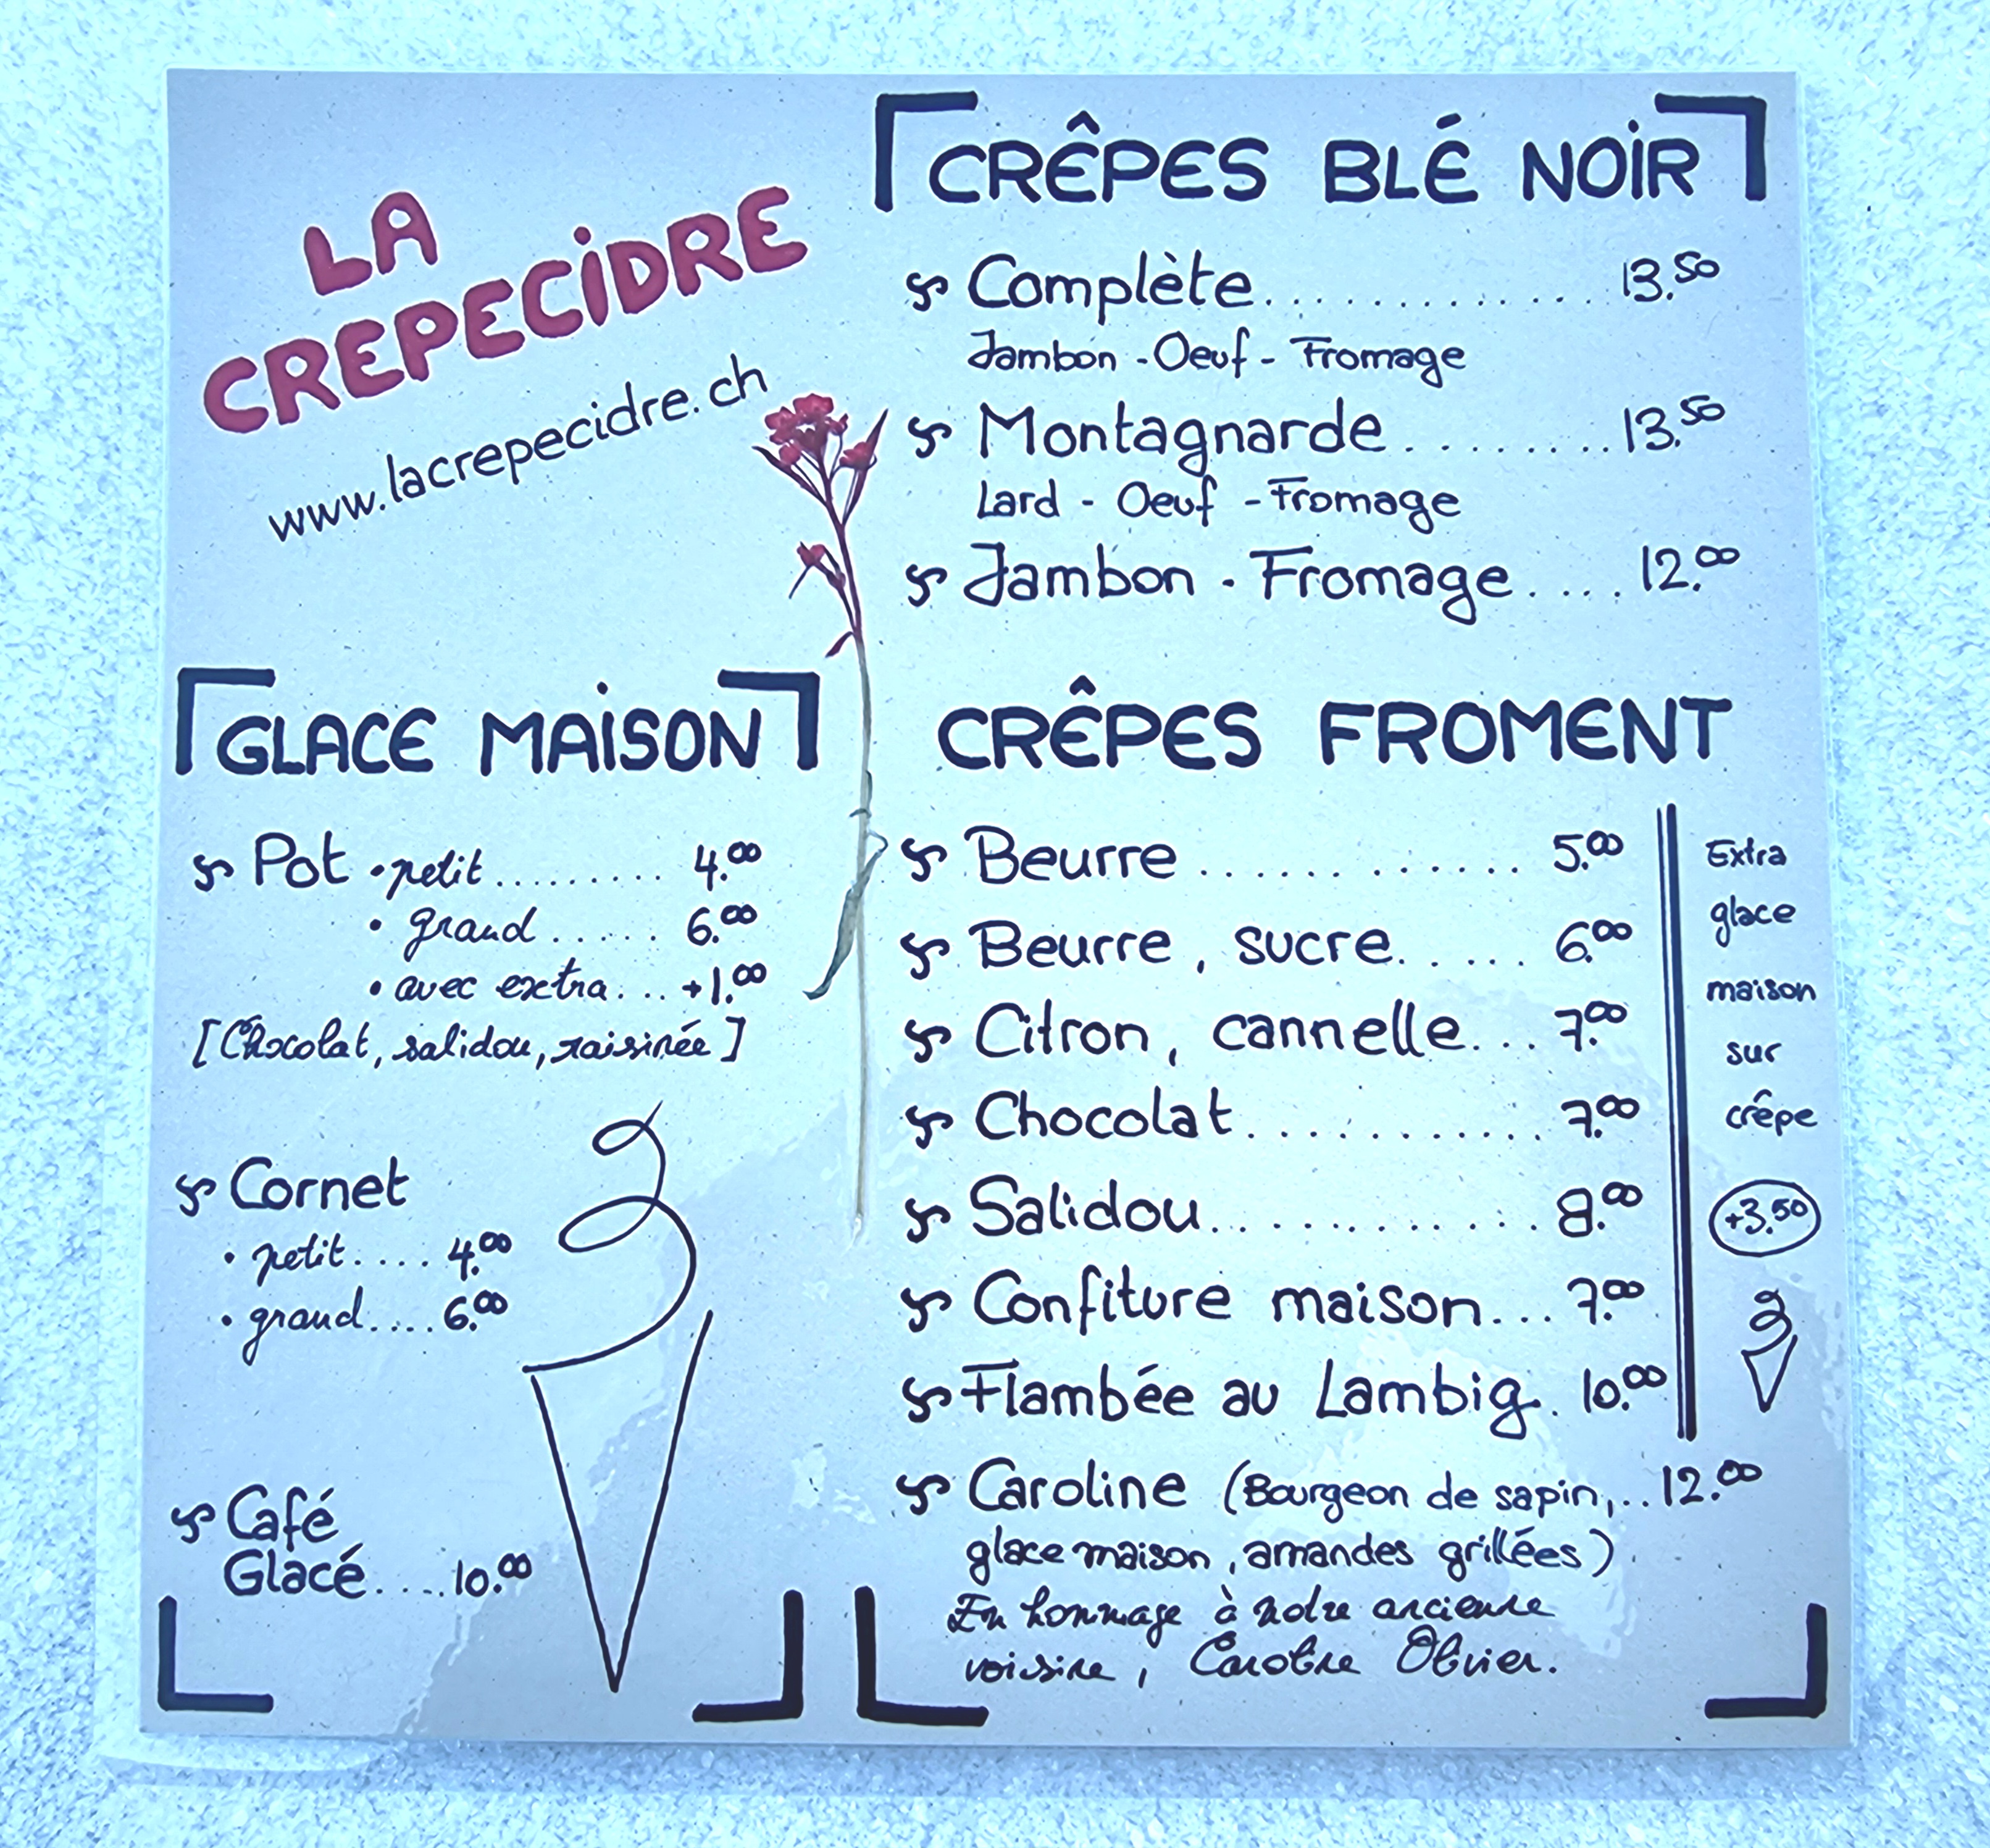 LA
CREPECIDRE
www.lacrepecidre.ch
GLACE MAISON
Pot • petit ......... 4.00
• grand ...... 6.00
• avec extra ... +1.00
[Chocolat, salidou, raisinée]
Cornet
• petit .... 4.00
• grand .... 6.00
Café
Glacé .... 10.00
CRÊPES BLÉ NOIR
Complète ............. 13.50
Jambon - Oeuf - Fromage
Montagnarde ......... 13.50
Lard - Oeuf - Fromage
Jambon - Fromage .... 12.00
CRÊPES FROMENT
Beurre ............ 5.00
Beurre, sucre ..... 6.00
Citron, cannelle ... 7.00
Chocolat ............ 7.00
Salidou ............. 8.00
Confiture maison ... 7.00
Flambée au Lambig . 10.00
Caroline (Bourgeon de sapin, .. 12.00
glace maison, amandes grillées)
En hommage à notre ancienne
voisine, Caroline Olivier.
Extra
glace
maison
sur
crêpe
+3.50